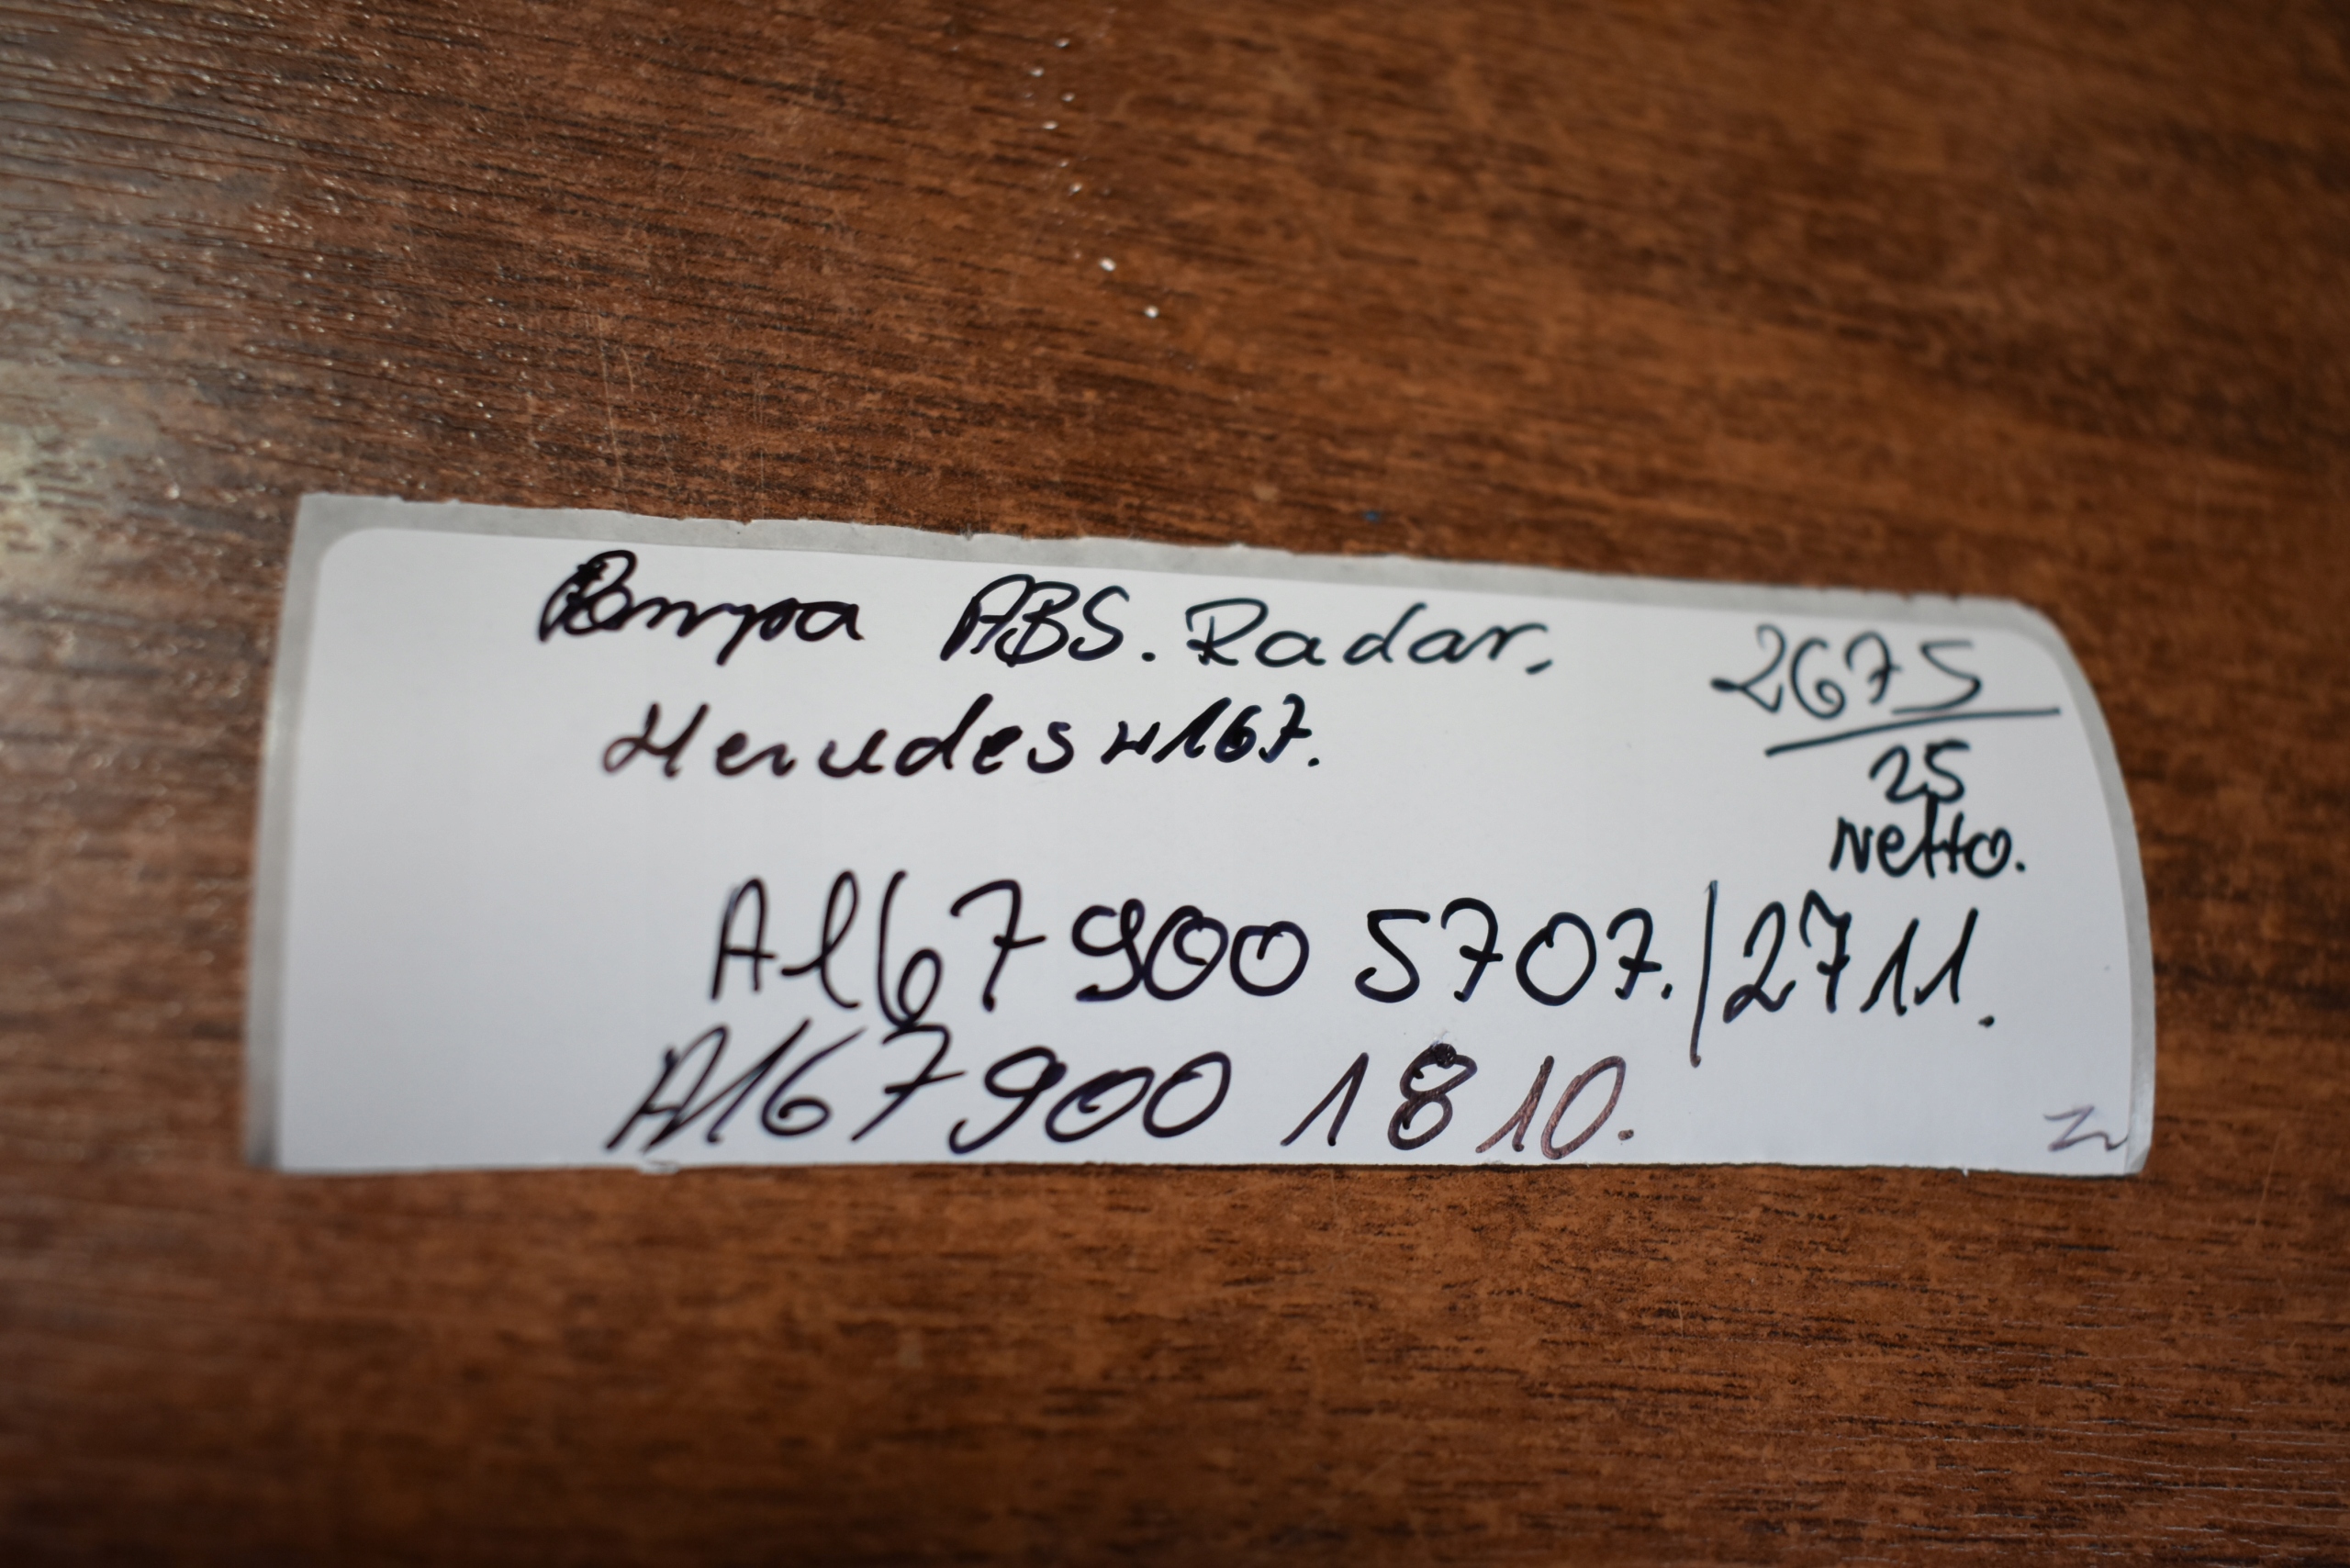 Pompa ABS. Radar.
Mercedes w167.
2675
25
netto.
A167 900 5707./2711.
A167 900 1810.